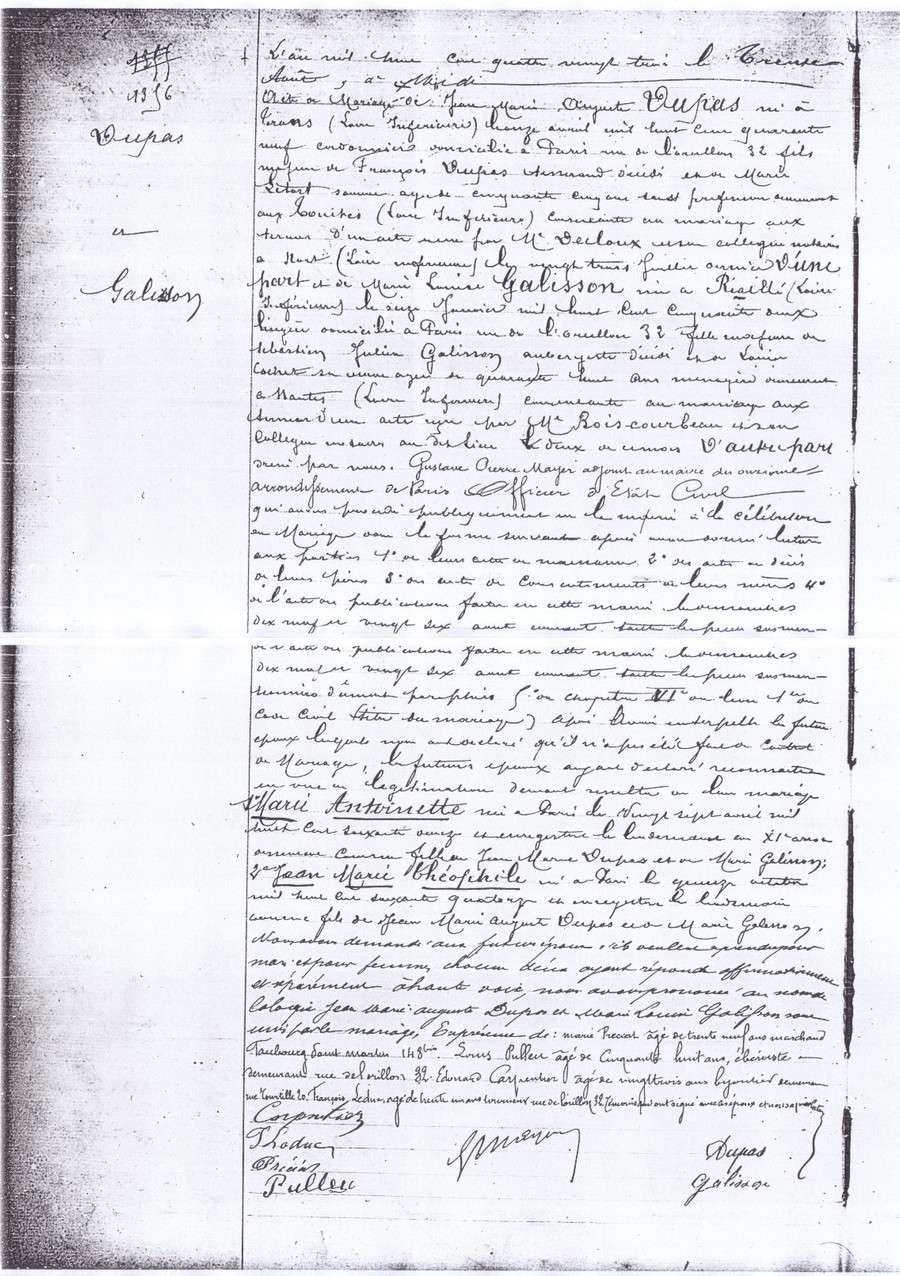 1356
Dupas
et
Galisson
L'an mil huit cent quatre vingt trois le trente
Août, à Midi
Acte de Mariage de Jean Marie Auguste Dupas né à
(Loire Inférieure) le onze avril mil huit cent quarante
neuf cordonnier domicilié à Paris rue de l'orillon 32 fils
majeur de François Dupas décédé et de Marie
sa veuve agée de cinquante cinq ans sans profession demeurant
aux Touches (Loire Inférieure) consentante au mariage aux
termes d'un acte reçu par Me Decloux et son collègue notaires
à Nort (Loire inférieure) le vingt trois Juillet dernier D'une
part et de Marie Louise Galisson née à Riaillé (Loire
Inférieure) le seize Janvier mil huit cent cinquante deux
lingère domiciliée à Paris rue de l'orillon 32 fille majeure de
Sébastien Julien Galisson aubergiste décédé et de Louise
sa veuve agée de quarante huit ans ménagère demeurant
à Nantes (Loire Inférieure) consentante au mariage aux
termes d'un acte reçu par Me Boiscourbeau et son
collègue notaires au dit lieu le deux de ce mois D'autre part
dressé par nous, Gustave Pierre Mayer adjoint au maire du onzième
arrondissement de Paris Officier d'Etat Civil
qui avons procédé publiquement en la mairie à la célébration
du Mariage dans la forme suivante après avoir donné lecture
aux parties 1° de leurs actes de naissance 2° des actes de décès
de leurs pères 3° des actes de consentements de leurs mères 4°
de l'acte des publications faites en cette mairie les dimanches
dix neuf et vingt six aout courant toutes les pièces susmen-
de l'acte des publications faites en cette mairie les dimanches
dix neuf et vingt six aout courant toutes les pièces susmen-
tionnées dûment paraphées 5° du chapitre VI du livre 1er du
Code Civil (titre du mariage) après avoir interpellé les futurs
époux lesquels nous ont déclaré qu'il n'a pas été fait de contrat
de Mariage, les futurs époux ayant déclaré reconnaitre
en vue de la légitimation devant résulter de leur mariage
1° Marie Antoinette née à Paris le vingt sept avril mil
huit cent soixante onze et enregistrée le lendemain au XIe arron
dissement comme fille de Jean Marie Dupas et de Marie Galisson;
2° Jean Marie Théophile né à Paris le quinze octobre
mil huit cent soixante quatorze et enregistré le lendemain
comme fils de Jean Marie Auguste Dupas et de Marie Galisson.
Nous avons demandé aux futurs époux s'ils veulent se prendre pour
mari et pour femme, chacun d'eux ayant répondu affirmativement
et séparément à haute voix, nous avons prononcé au nom de
la loi que Jean Marie Auguste Dupas et Marie Louise Galisson sont
unis par le mariage, En présence de: Marie agé de trente neuf ans marchand
Faubourg Saint Martin 148 bis. Louis Pulleu agé de Cinquante huit ans, ébéniste
demeurant rue de l'orillon 32. Edouard Carpentier agé de vingt trois ans bijoutier demeurant
rue Tourtille 20. François Leduc, agé de trente un ans tourneur rue de l'orillon 32 Témoins qui ont signé avec les époux et nous après lecture
Carpentier
Leduc
Pulleu
Mayer
Dupas
Galisson